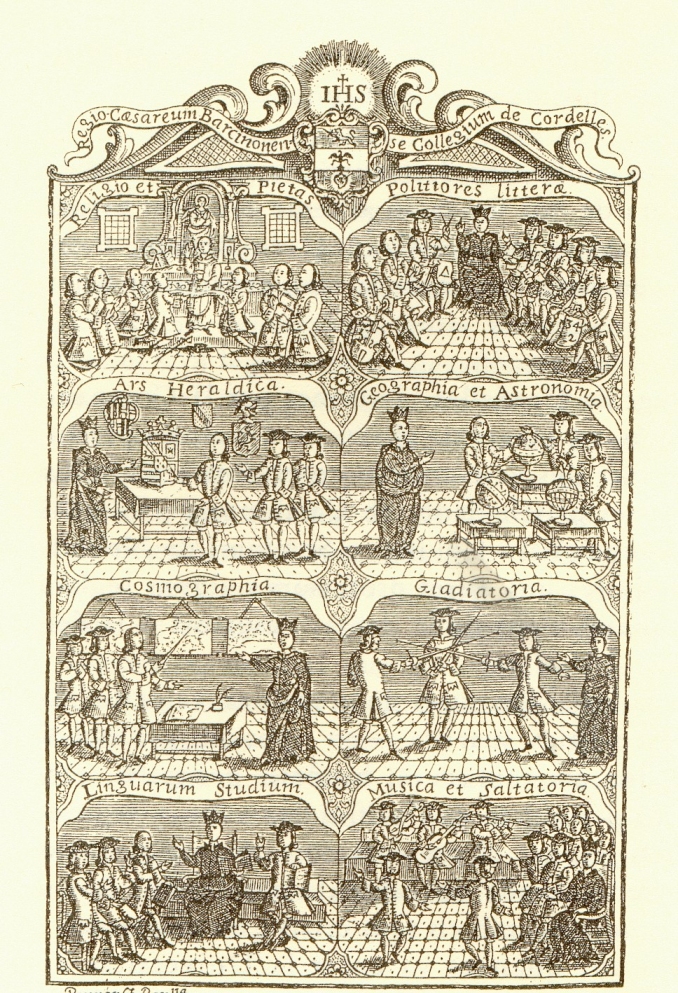 IHS
Regio-Cæsareum Barcinonen-
se Collegium de Cordelles
Religio et Pietas
Polittores litteræ.
Ars Heraldica.
Geographia et Astronomia.
Cosmographia.
Gladiatoria.
Linguarum Studium.
Musica et Saltatoria